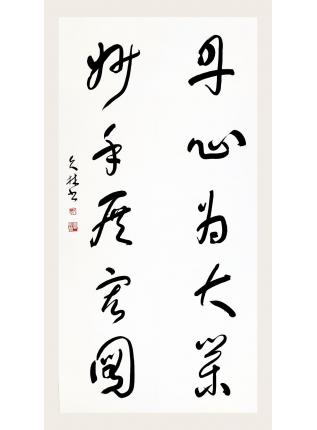 丹心为大業
妙手展宏圖